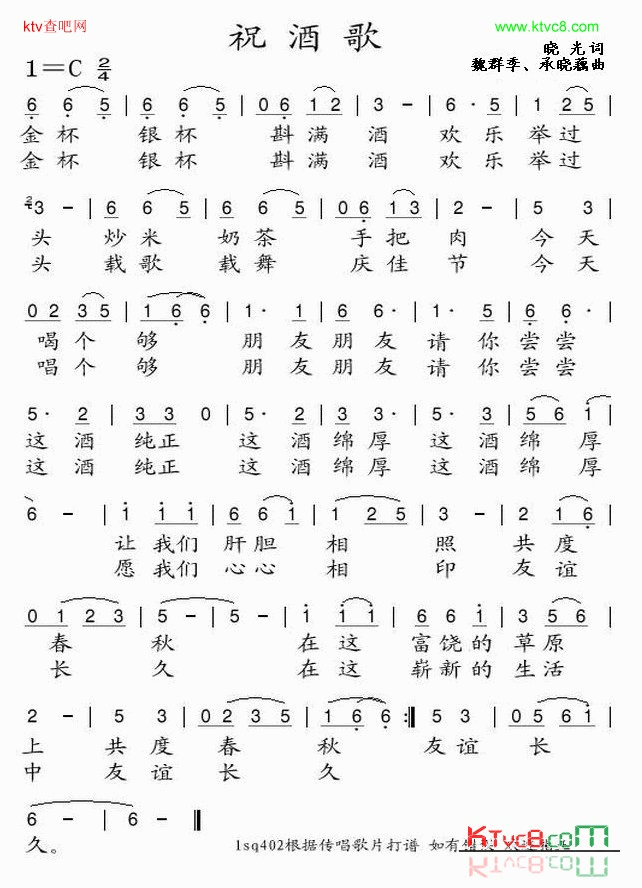 ktv查吧网
www.ktvc8.com
祝酒歌
晓光词
1=C 2/4
魏群季、承晓藕曲
6 6 5 | 6 6 5 | 0 6 1 2 | 3 - | 6· 5 | 1 2 5 |
金杯 银杯 斟满酒 欢乐举过
金杯 银杯 斟满酒 欢乐举过
3 - | 6 6 5 | 6 6 5 | 0 6 1 3 | 2 - | 5 3 |
头 炒米 奶茶 手把肉 今天
头 载歌 载舞 庆佳节 今天
0 2 3 5 | 1 6 6 | 1· 1 | 6 6· | 1· 5 | 6 6· |
喝个够 朋友朋友请你尝尝
唱个够 朋友朋友请你尝尝
5· 2 | 3 3 0 | 5· 2 | 3 3· | 5· 2 | 5 6 1 |
这酒纯正 这酒绵厚 这酒绵厚
这酒纯正 这酒绵厚 这酒绵厚
6 - | 1 1 1 | 6 6 1 | 1 2 5 | 3 - | 2 1 6 |
让我们肝胆相照 共度
愿我们心心相印 友谊
0 1 2 3 | 1 - | 5 - | 1 1 1 | 6 6 1 | 5 3 |
春秋 在这富饶的草原
长久 在这崭新的生活
2 - | 5 3 | 0 2 3 5 | 1 6 6 :‖ 5 3 | 0 5 6 1 |
上 共度春秋 友谊长
中 友谊长久
6 - | 6 - ‖
久。
lsq402根据传唱歌片打谱 如有
KTvc8com